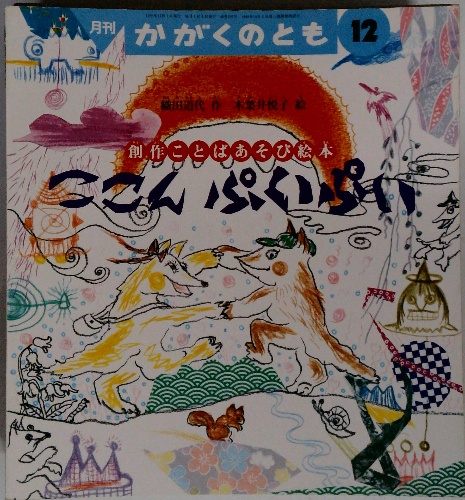 月刊 かがくのとも 12
織田道代 作 木葉井悦子 絵
創作ことばあそび絵本
ここん ぷくいぷい